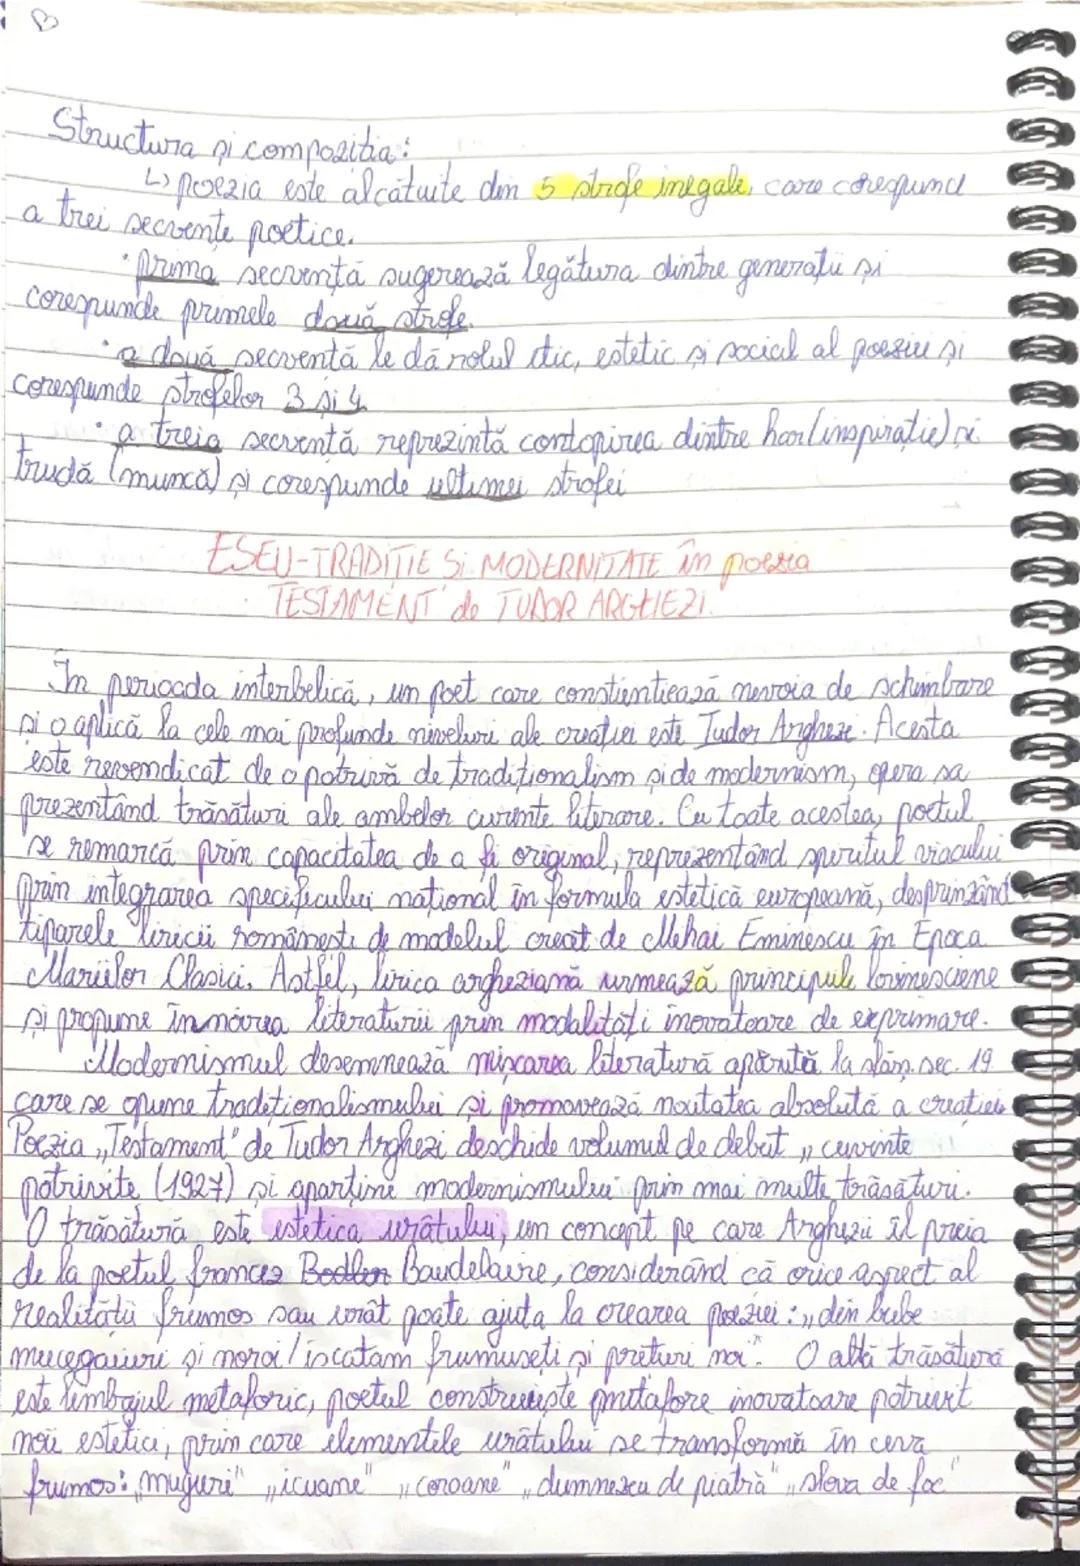 Structura și compoziția:
↳ poezia este alcătuite din 5 strofe inegale, care corespund
a trei secvențe poetice.
• prima secvență sugerează legătura dintre generații și
corespunde primele două strofe.
• a două secvență le dă rolul etic, estetic și social al poeziei și
corespunde strofelor 3 și 4
• a treia secvență reprezintă contopirea dintre har (inspirație) și
trudă (muncă) și corespunde ultimei strofei
ESEU-TRADIȚIE Si MODERNITATE în poezia
TESTAMENT de TUDOR ARGHEZI.
În perioada interbelică, un poet care conștientiează nevoia de schimbare
și o aplică la cele mai profunde niveluri ale creației este Tudor Arghezi. Acesta
este revendicat de o potrivă de tradiționalism și de modernism, opera sa
prezentând trăsături ale ambelor curente literare. Cu toate acestea, poetul
se remarcă prin capacitatea de a fi original, reprezentând spiritul viacului
prin integrarea specificului național în formula estetică europeană, desprinzând
tiparele liricii românești de modelul creat de Mihai Eminescu în Epoca
Mariilor Clasici. Astfel, lirica argheziană urmează principiile lovinesciene
și propune înnoirea literaturii prin modalități inovatoare de exprimare.
Modernismul desemnează mișcarea literatură apărută la sfârș. sec. 19
care se opune tradiționalismului și promovează noutatea absolută a creației
Poezia „Testament" de Tudor Arghezi deschide volumul de debut „cuvinte
potrivite (1927) și aparține modernismului prin mai multe trăsături.
O trăsătură este estetica urâtului, un concept pe care Arghezii îl preia
de la poetul francez Bodler Baudelaire, considerând că orice aspect al
realității frumos sau urât poate ajuta la crearea poeziei: „din bube
mucegaiuri și noroi/iscatam frumuseți și prețuri noi". O altă trăsătură
este limbajul metaforic, poetul construiește metafore inovatoare potrivit
noii estetici, prin care elementele urâtului se transformă în ceva
frumos: „muguri" „icuane" „coroane" „dumnezeu de piatră" „slova de foc"